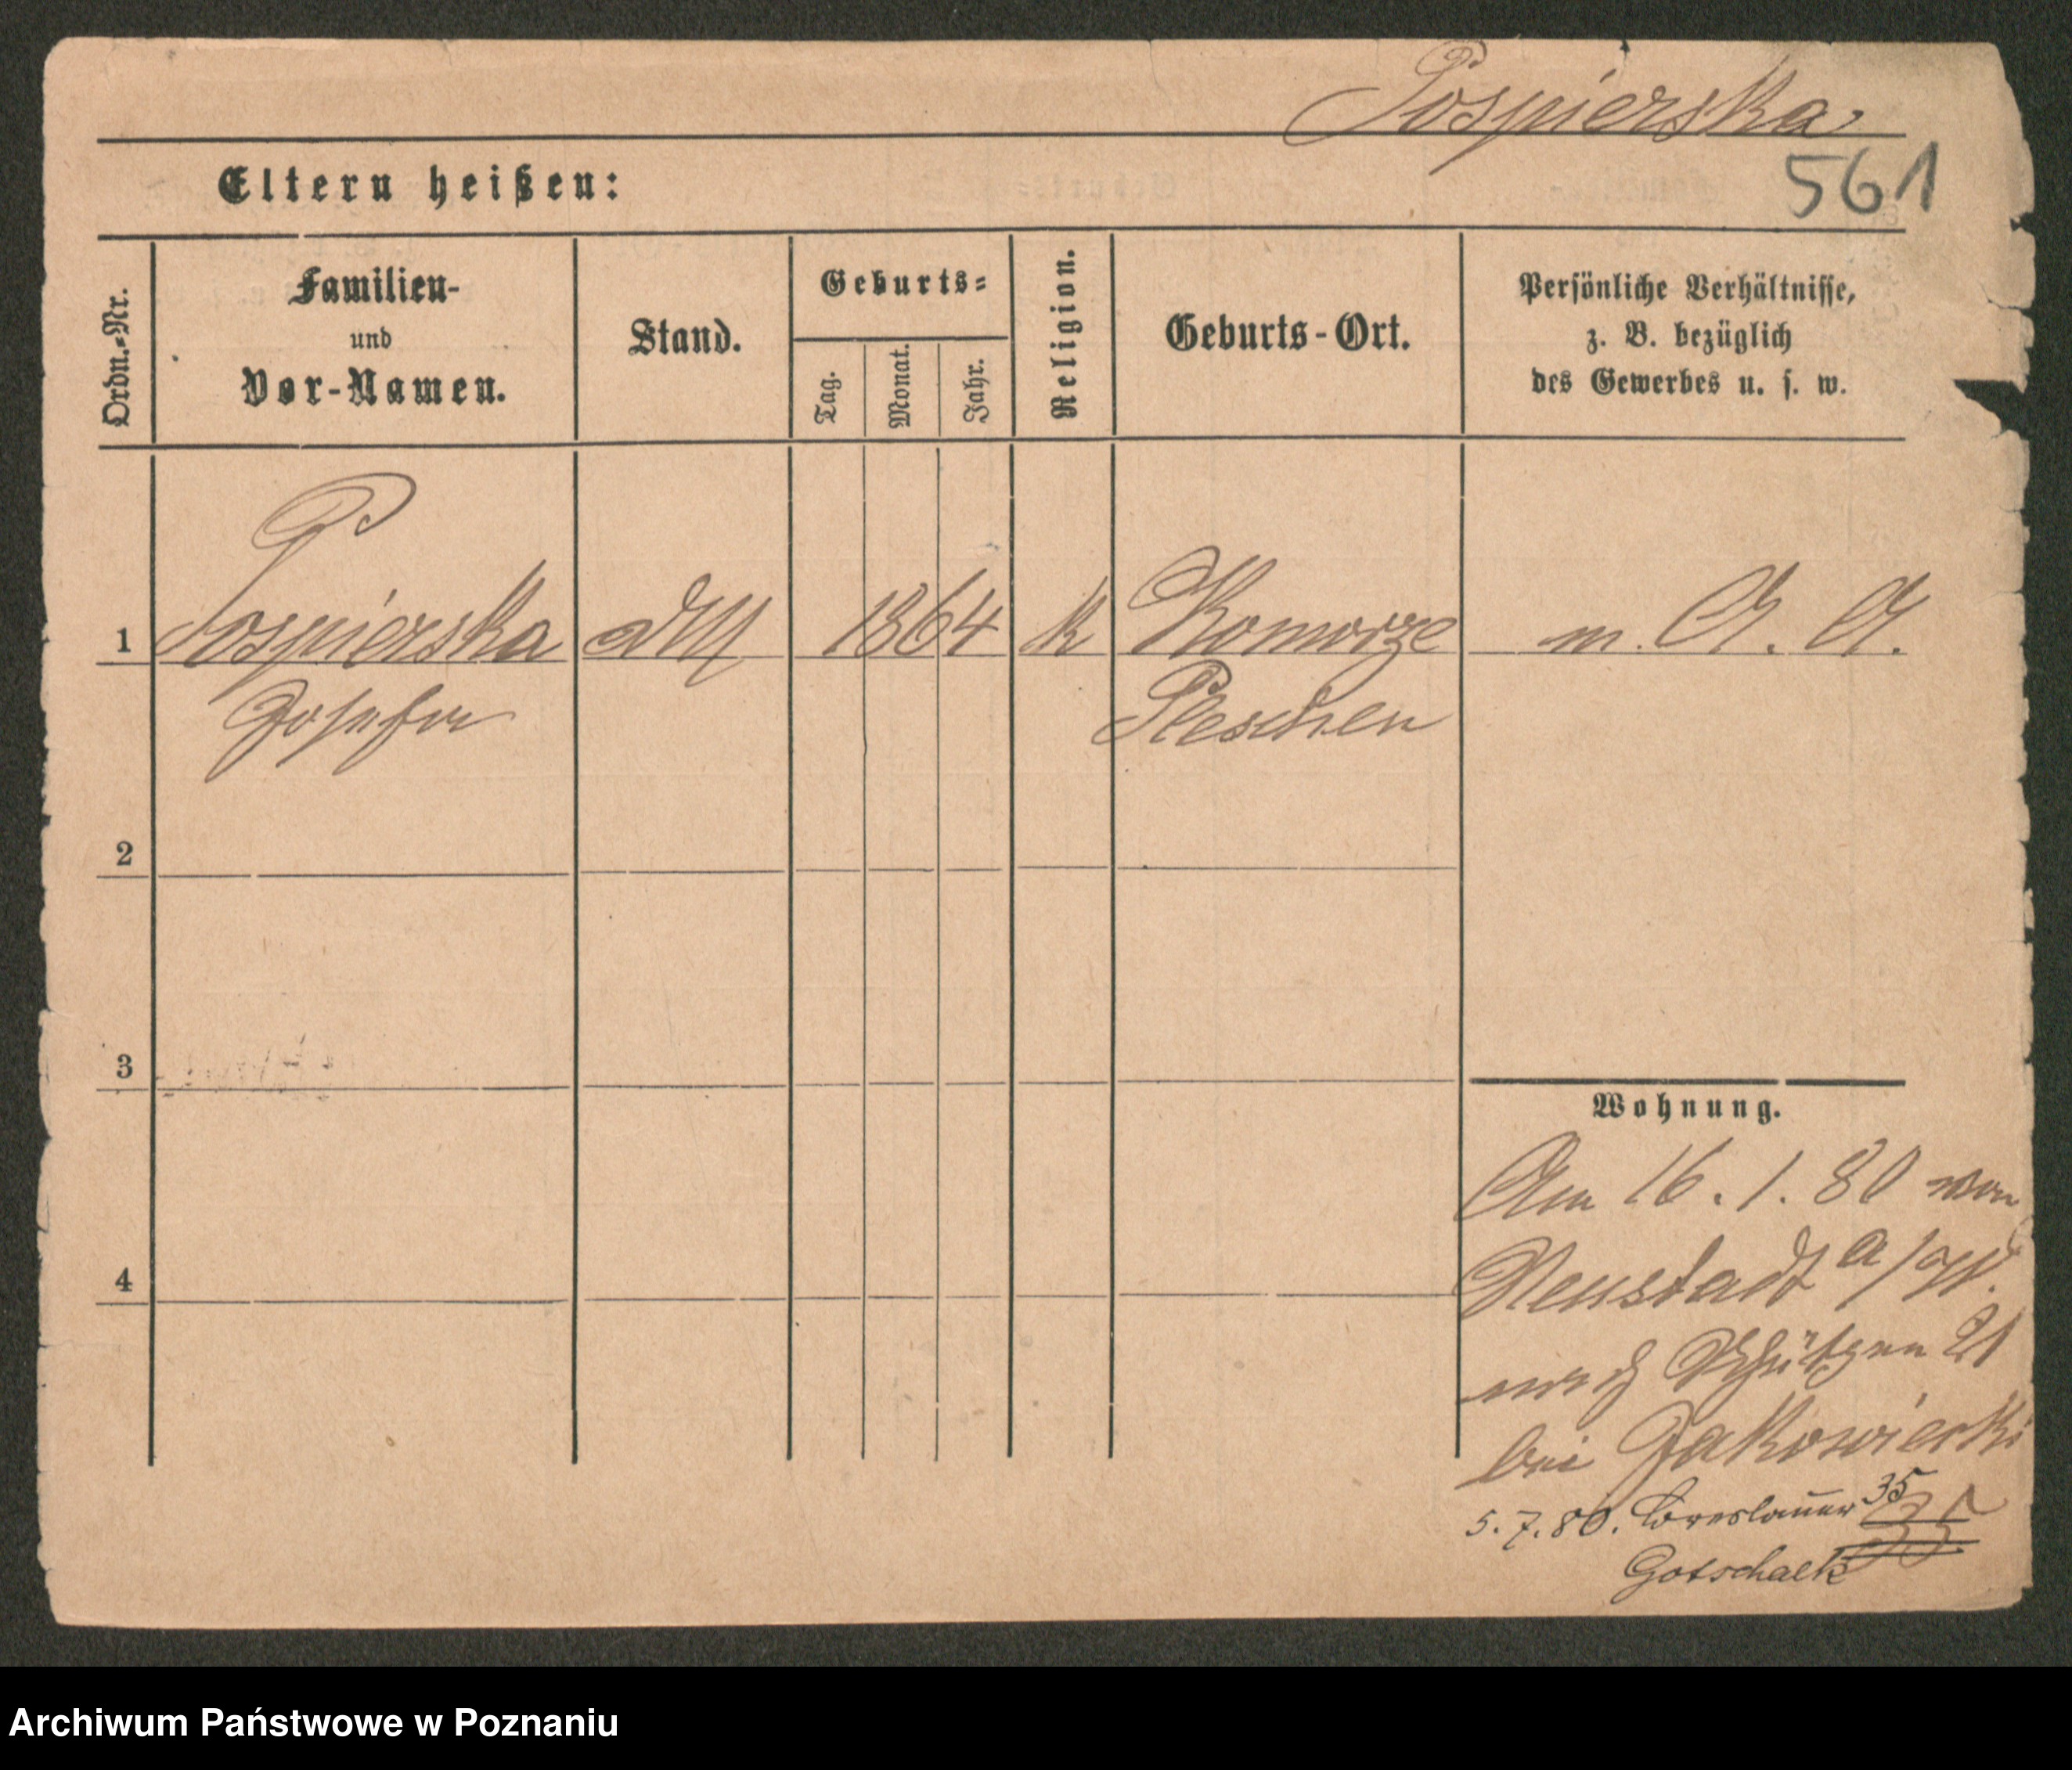 Pospierska
561
Eltern heißen:
Ordn.-Nr.
Familien-
und
Vor-Namen.
Stand.
Geburts-
Tag.
Monat.
Jahr.
Religion.
Geburts-Ort.
Persönliche Verhältnisse,
z. B. bezüglich
des Gewerbes u. s. w.
1 Pospierska 1864 k Komorze m. A. A.
Josefa Pleschen
2
3
4
Wohnung.
Am 16. 1. 80 von
Neustadt a/W.
nach Schützen 21
bei Jakowicki
5. 7. 80. Breslauer 35
Gotschalk
Archiwum Państwowe w Poznaniu